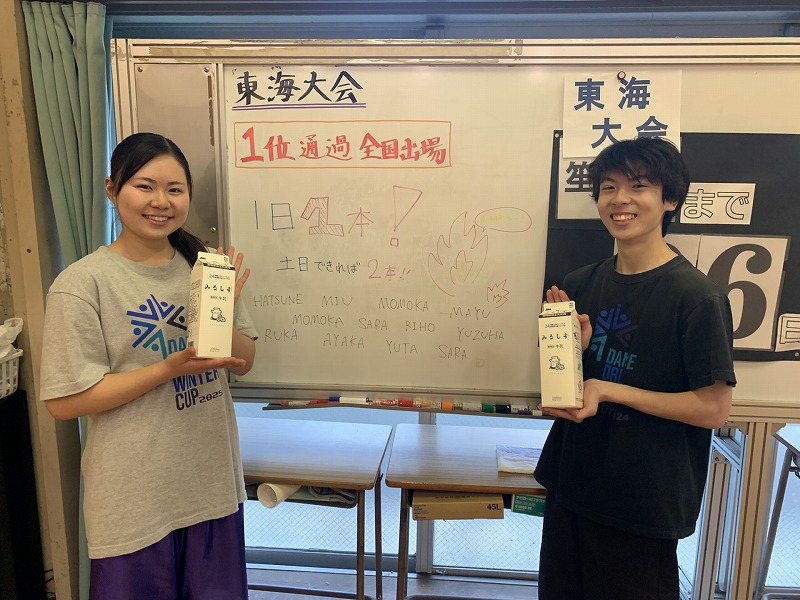 東海大会
1位通過 全国出場
1日1本!
土日できれば2本!!
HATSUNE MIU MOMOKA MAYU
MOMOKA SARA RIHO YUZUHA
RUKA AYAKA YUTA SARA
東海
大会
まで
6
日
みるしず
牛乳
DANCE
WINTER
CUP 2025
みるしず
牛乳
DANCE
45L